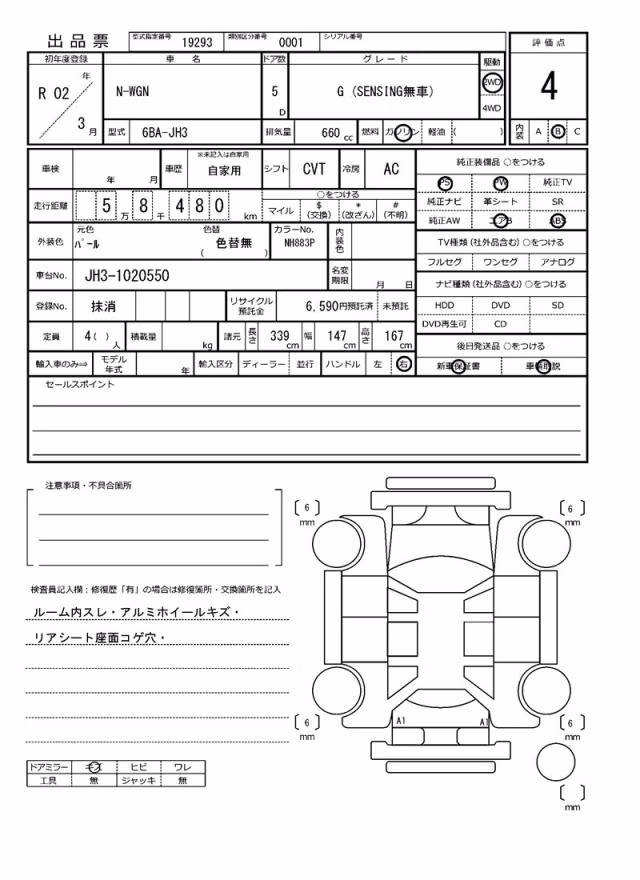 出品票 型式指定番号 19293 類別区分番号 0001 シリアル番号
評価点
初年度登録 車名 ドア数 グレード 駆動
R 02 年 3 月 N-WGN 5 D G (SENSING無車) 2WD 4WD
4
型式 6BA-JH3 排気量 660 cc 燃料 ガソリン 軽油 ( ) 内装 A B C
車検 年 月 車歴 ※未記入は自家用 自家用 シフト CVT 冷房 AC
純正装備品 ○をつける
PS PW 純正TV
走行距離 5 万 8 千 4 8 0 km ○をつける
マイル $ (交換) * (改ざん) # (不明)
純正ナビ 革シート SR
純正AW エアB ABS
外装色 元色 パール 色替 色替無 ( ) カラーNo. NH883P 内装色
TV種類 (社外品含む) ○をつける
フルセグ ワンセグ アナログ
車台No. JH3-1020550 名変期限 月 日
ナビ種類 (社外品含む) ○をつける
登録No. 抹消 リサイクル預託金 6,590円預託済 未預託
HDD DVD SD
DVD再生可 CD
定員 4( ) 人 積載量 kg 諸元 長さ 339 cm 幅 147 cm 高さ 167 cm
後日発送品 ○をつける
輸入車のみ⇒ モデル年式 年 輸入区分 ディーラー 並行 ハンドル 左 右
新車保証書 車輌取説
セールスポイント
注意事項・不具合箇所
検査員記入欄：修復歴「有」の場合は修復箇所・交換箇所を記入
ルーム内スレ・アルミホイールキズ・
リアシート座面コゲ穴・
[ 6 ] mm
[ 6 ] mm
[ 6 ] mm
[ 6 ] mm
A1 A1
[ ] mm
ドアミラー キズ ヒビ ワレ
工具 無 ジャッキ 無